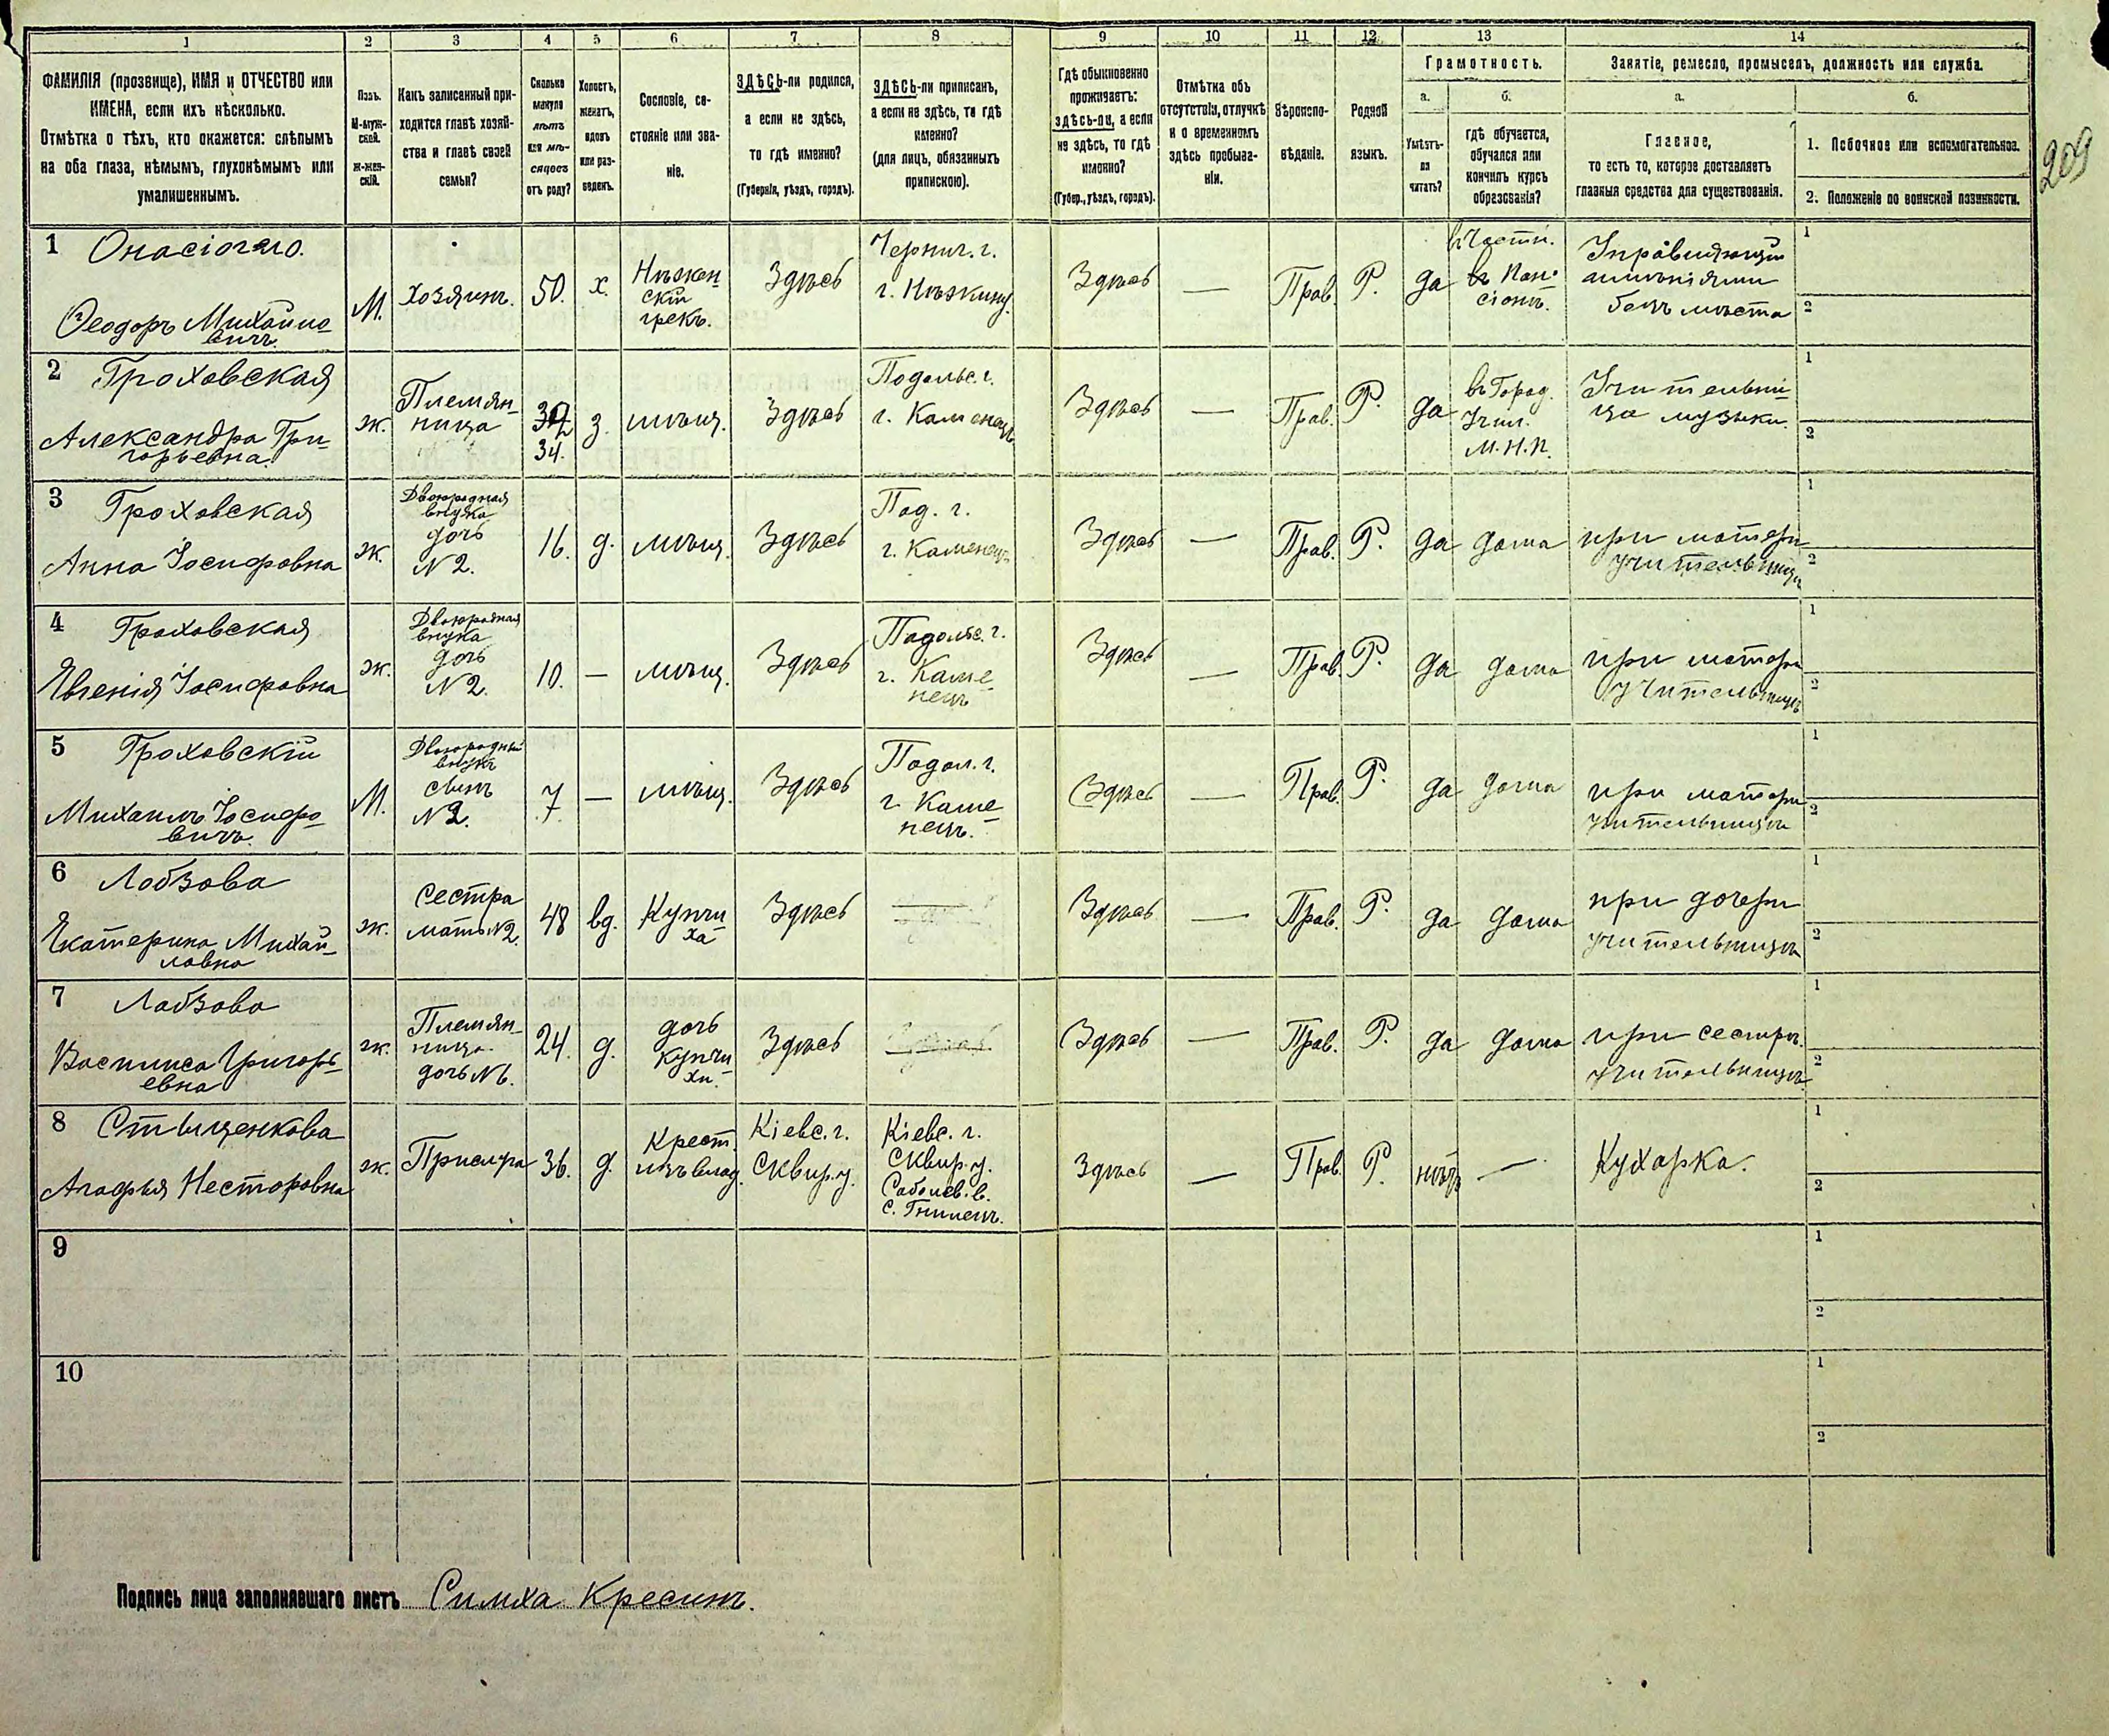 1 2 3 4 5 6 7 8 9 10 11 12 13 14
ФАМИЛІЯ (прозвище), ИМЯ и ОТЧЕСТВО или
ИМЕНА, если ихъ нѣсколько.
Отмѣтка о тѣхъ, кто окажется: слѣпымъ
на оба глаза, нѣмымъ, глухонѣмымъ или
умалишеннымъ.
Полъ.
М-муж-
ской.
ж-жен-
скій.
Какъ записанный при-
ходится главѣ хозяй-
ства и главѣ своей
семьи?
Сколько
минуло
лѣтъ
или мѣ-
сяцевъ
отъ роду?
Холостъ,
женатъ,
вдовъ
или раз-
веденъ.
Сословіе, со-
стояніе или зва-
ніе.
ЗДѢСЬ-ли родился,
а если не здѣсь,
то гдѣ именно?
(Губернія, уѣздъ, городъ).
ЗДѢСЬ-ли приписанъ,
а если не здѣсь, то гдѣ
именно?
(для лицъ, обязанныхъ
припискою).
Гдѣ обыкновенно
проживаетъ:
здѣсь-ли, а если
не здѣсь, то гдѣ
именно?
(Губер., уѣздъ, городъ).
Отмѣтка объ
отсутствіи, отлучкѣ
и о временномъ
здѣсь пребыва-
ніи.
Вѣроиспо-
вѣданіе.
Родной
языкъ.
Грамотность.
а.
Умѣетъ-
ли
читать?
б.
гдѣ обучается,
обучался или
кончилъ курсъ
образованія?
Занятіе, ремесло, промыселъ, должность или служба.
а.
Главное,
то есть то, которое доставляетъ
главныя средства для существованія.
б.
1. Побочное или вспомогательное.
2. Положеніе по воинской повинности.
209
1
Ѳеодоръ Михайло-
вичъ.
М.
Хозяинъ.
50.
х.
Нѣжен-
скій
грекъ.
Здѣсь
Черниг. г.
г. Нѣжину.
Здѣсь
—
Прав.
Р.
да
въ Части.
въ Пан-
сіонѣ.
Управляющій
имѣніями
безъ мѣста
1
2
2 Гроховская
Александра Гри-
горьевна.
ж.
Племян-
ница
34.
з.
мѣщ.
Здѣсь
Подольс. г.
г. Каменецъ
Здѣсь
—
Прав.
Р.
да
въ Город.
Учил.
М. Н. П.
Учительни-
ца музыки.
1
2
3 Гроховская
Анна Іосифовна
ж.
Двоюродная
внучка
дочь
N 2.
16.
д.
мѣщ.
Здѣсь
Под. г.
г. Каменецъ
Здѣсь
—
Прав.
Р.
да
дома
при матери
учительницѣ
1
2
4 Гроховская
Евгенія Іосифовна
ж.
Двоюродная
внучка
дочь
N 2.
10.
—
мѣщ.
Здѣсь
Подольс. г.
г. Каме-
нецъ
Здѣсь
—
Прав.
Р.
да
дома
при матери
учительницѣ
1
2
5 Гроховскій
Михаилъ Іосифо-
вичъ.
М.
Двоюродный
внукъ
сынъ
N 2.
7
—
мѣщ.
Здѣсь
Подол. г.
г. Каме-
нецъ.
Здѣсь
—
Прав.
Р.
да
дома
при матери
учительницѣ
1
2
6 Лобзова
Екатерина Михай-
ловна
ж.
Сестра
мать N 2.
48
вд.
Купчи-
ха
Здѣсь
Здѣсь
—
Прав.
Р.
да
дома
при дочери
учительницѣ
1
2
7 Лобзова
Василиса Григорь-
евна
ж.
Племян-
ница.
дочь N 6.
24.
д.
дочь
купчи-
хи.
Здѣсь
Здѣсь
—
Прав.
Р.
да
дома
при сестрѣ
учительницѣ
1
2
8 Стыценкова
Агафья Несторовна
ж.
Прислуга
36.
д.
Крест.
изъ влад.
Кіевс. г.
Сквир. у.
Кіевс. г.
Сквир. у.
Соболев. в.
с. Гнилецъ.
Здѣсь
—
Прав.
Р.
нѣтъ
—
Кухарка.
1
2
9
1
2
10
1
2
Подпись лица заполнявшаго листъ Симха Кресинъ.